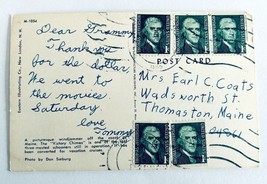 M-1036
Eastern Illustrating Co., New London, N. H.
Dear Grammy
Thank you
for the dollar.
We went to
the movies
Saturday.
love
Tommy
A picturesque windjammer off the coast of
Maine. The "Victory Chimes" is one of the
three masted schooners still in operation
been converted for vacation cruises.
Photo by Dan Selburg
POST CARD
Mrs Earl C. Coats
Wadsworth St.
Thomaston, Maine
04861